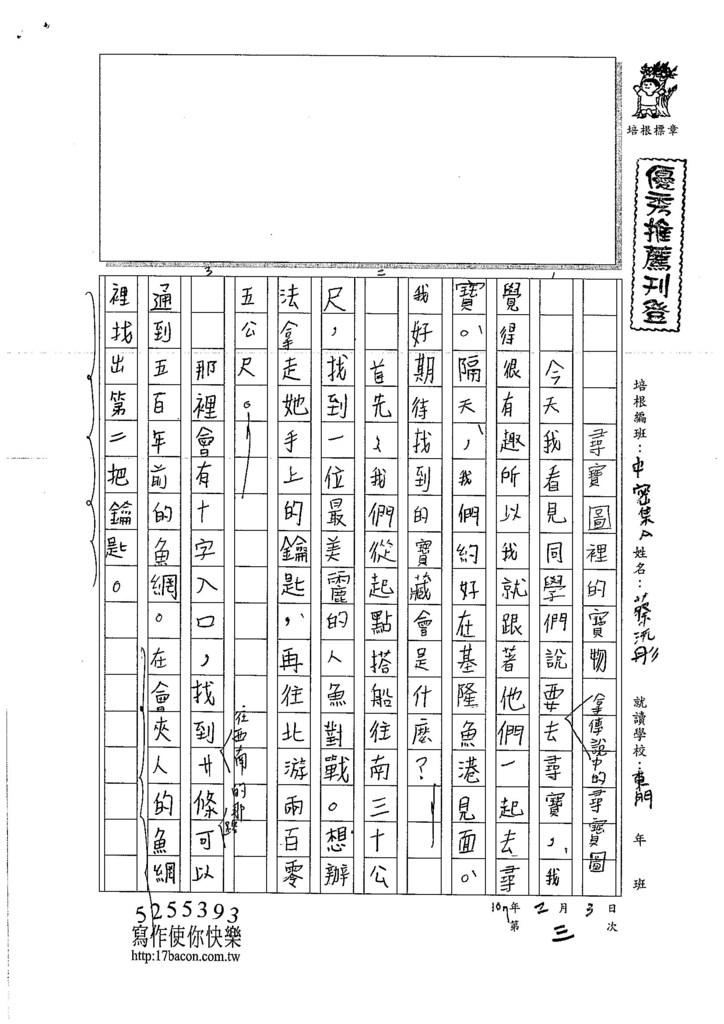 培根標章
優秀推薦刊登
培根編班：中密集A 姓名：蔡沠彤 就讀學校：東門 年 班
107年 2月 3日
第三次
尋寶圖裡的寶物
拿傳說中的尋寶圖
一
今天我看見同學們說要去尋寶，我
覺得很有趣所以我就跟著他們一起去尋
寶。隔天，我們約好在基隆魚港見面。
我好期待找到的寶藏會是什麼？
二
首先，我們從起點搭船往南三十公
尺，找到一位最美靂的人魚對戰。想辦
法拿走她手上的鑰匙，再往北游兩百零
五公尺。
往西南的那邊
三
那裡會有十字入口，找到廿條可以
通到五百年前的魚網。在會夾人的魚網
裡找出第二把鑰匙。
5255393
寫作使你快樂
http:17bacon.com.tw